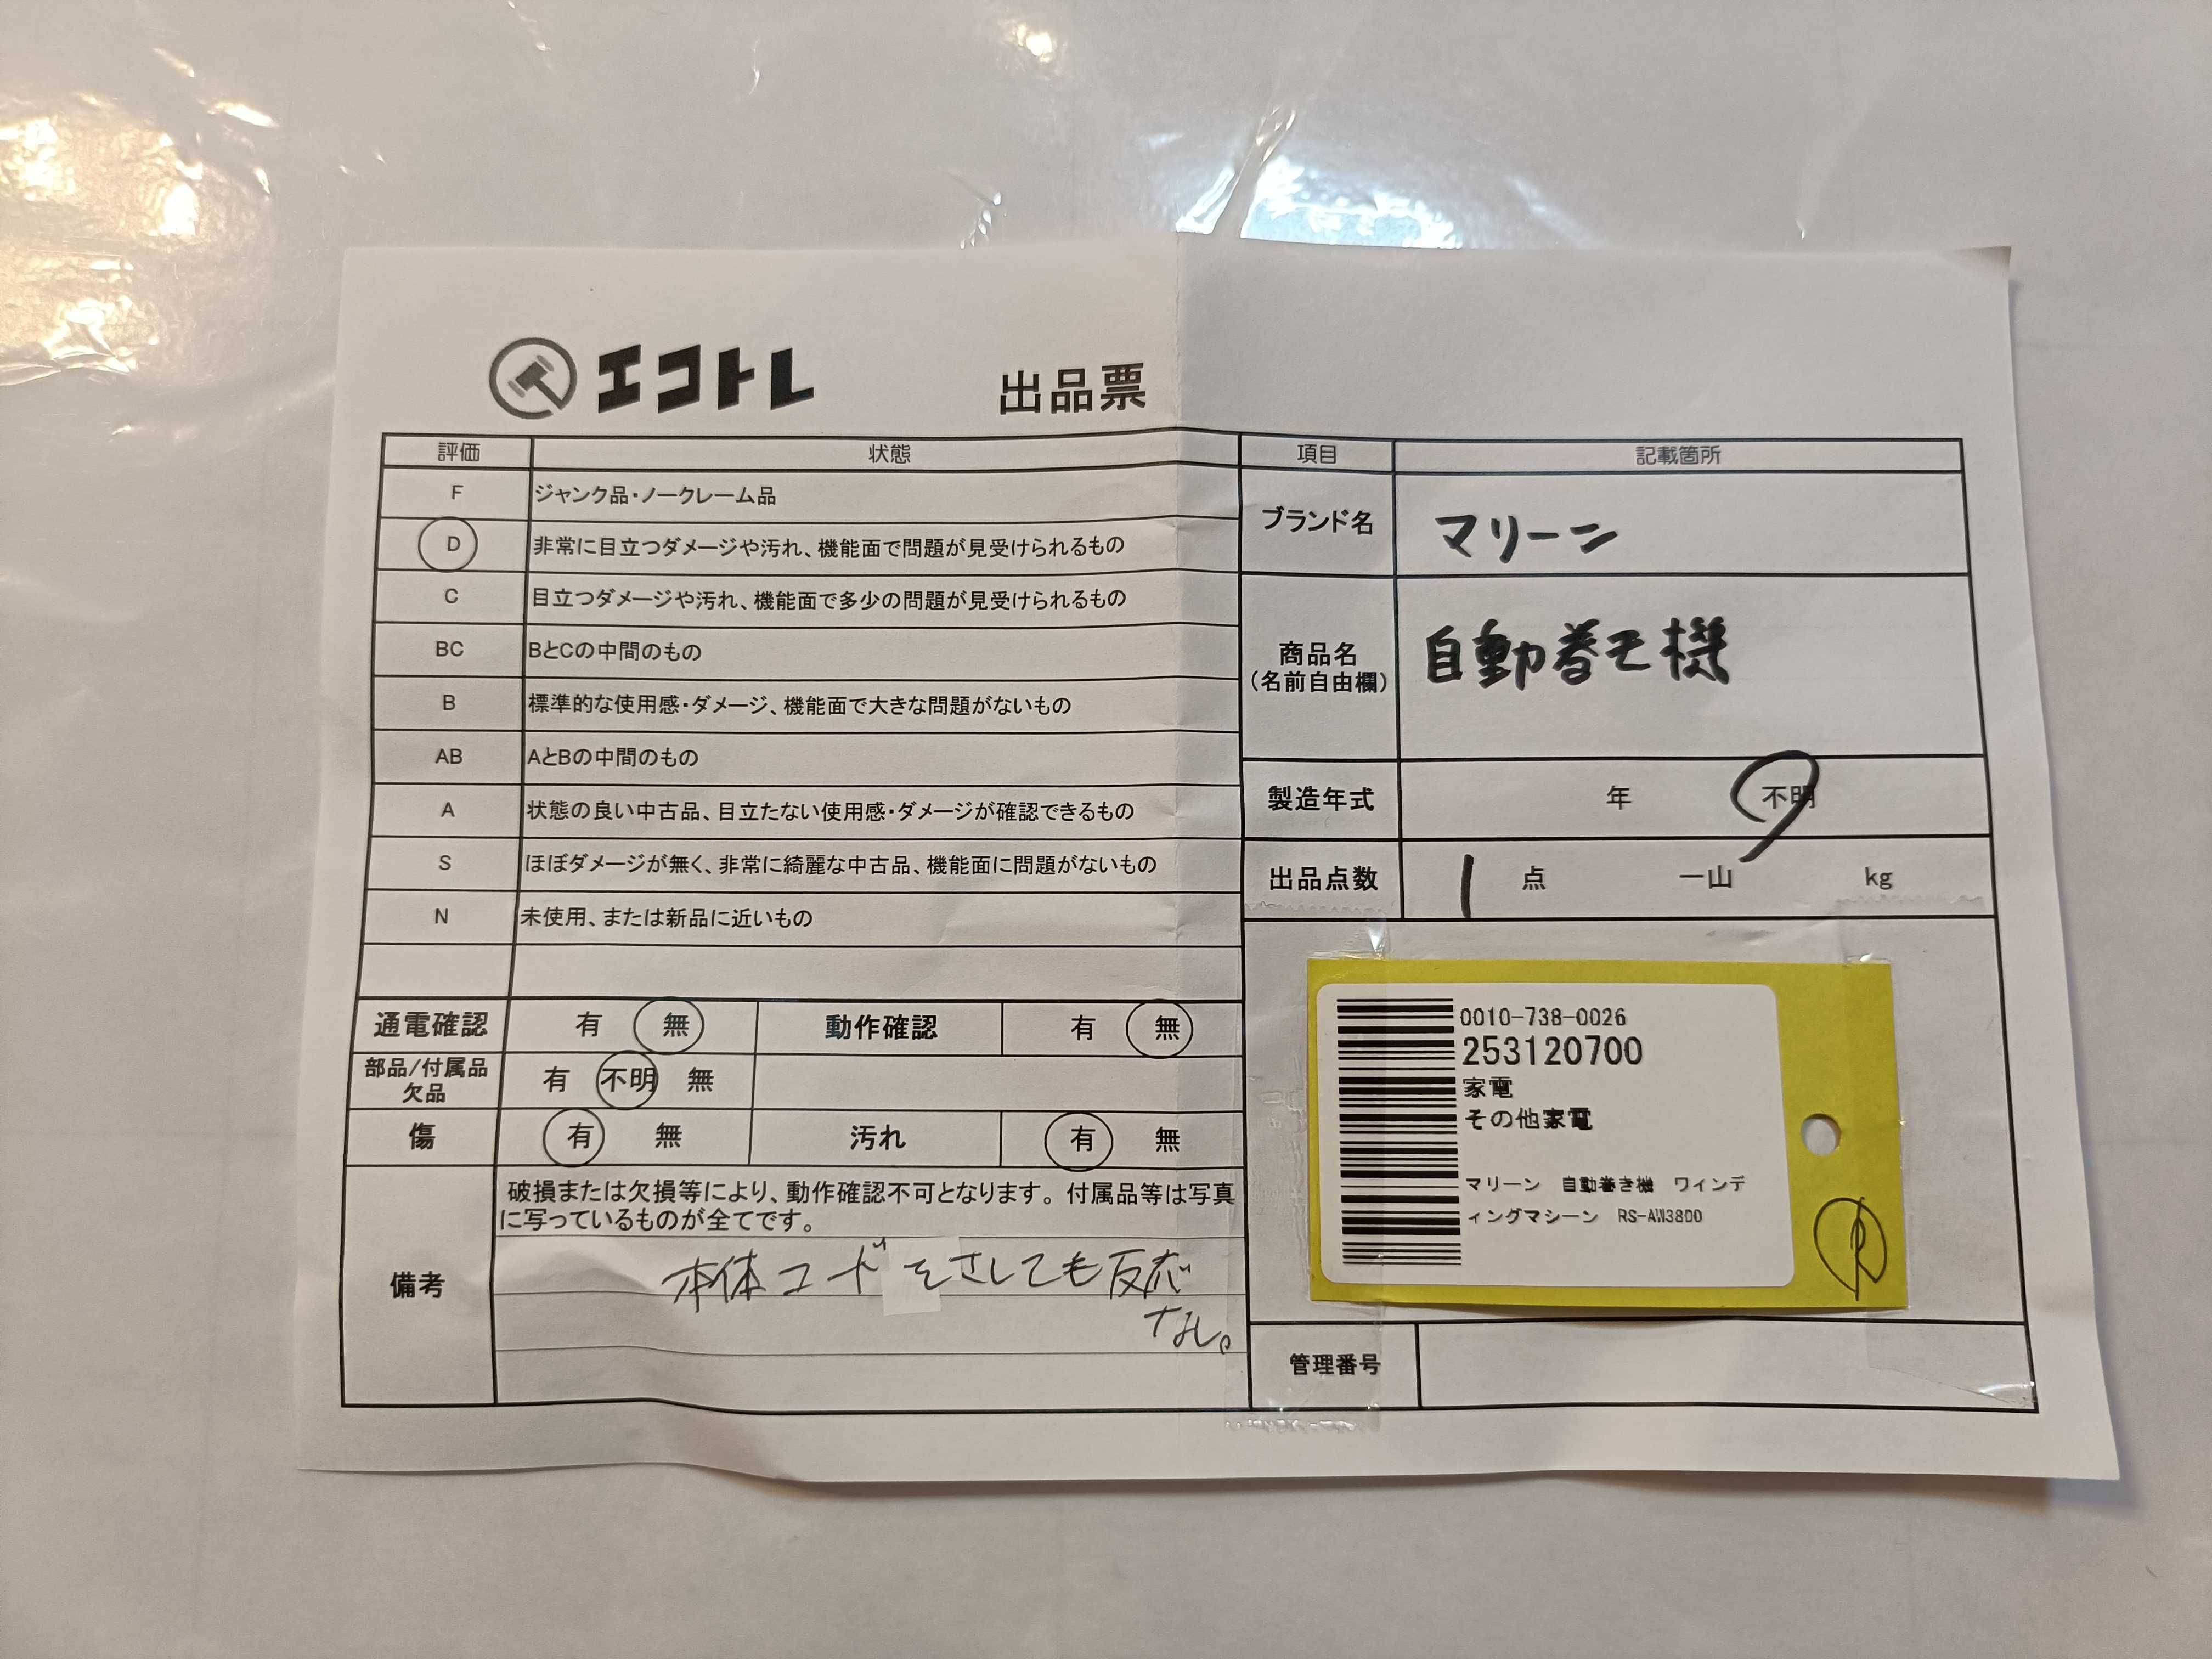 エコトレ 出品票
評価 状態
F ジャンク品・ノークレーム品
D 非常に目立つダメージや汚れ、機能面で問題が見受けられるもの
C 目立つダメージや汚れ、機能面で多少の問題が見受けられるもの
BC BとCの中間のもの
B 標準的な使用感・ダメージ、機能面で大きな問題がないもの
AB AとBの中間のもの
A 状態の良い中古品、目立たない使用感・ダメージが確認できるもの
S ほぼダメージが無く、非常に綺麗な中古品、機能面に問題がないもの
N 未使用、または新品に近いもの
通電確認 有 無 動作確認 有 無
部品/付属品
欠品 有 不明 無
傷 有 無 汚れ 有 無
備考
破損または欠損等により、動作確認不可となります。付属品等は写真
に写っているものが全てです。
本体コードをさしても反応
なし。
項目 記載箇所
ブランド名 マリーン
商品名
(名前自由欄)
自動巻き機
製造年式 年 不明
出品点数 1 点 一山 kg
0010-738-0026
253120700
家電
その他家電
マリーン 自動巻き機 ワインデ
ィングマシーン RS-AW38D0
管理番号